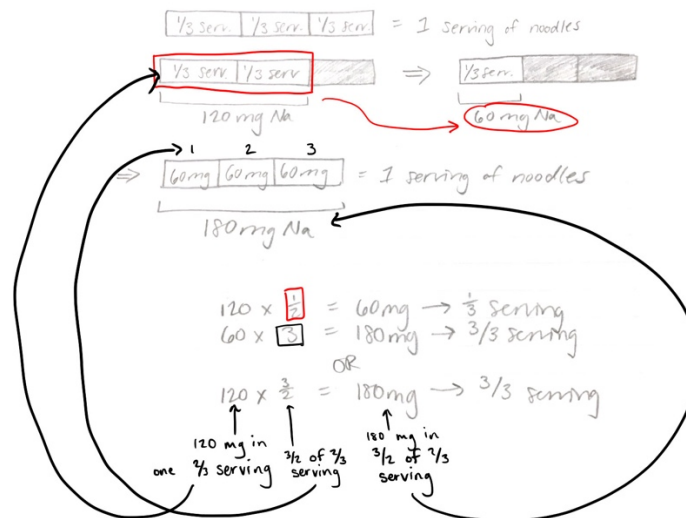 1/3 serv. 1/3 serv. 1/3 serv = 1 serving of noodles
1/3 serv 1/3 serv ⇒ 1/3 serv.
120 mg Na 60 mg Na
1 2 3
⇒ 60mg 60mg 60mg = 1 serving of noodles
180 mg Na
120 x 1/2 = 60mg → 1/3 serving
60 x 3 = 180mg → 3/3 serving
OR
120 x 3/2 = 180mg → 3/3 serving
120 mg in one 2/3 serving
3/2 of 2/3 serving
180 mg in 3/2 of 2/3 serving